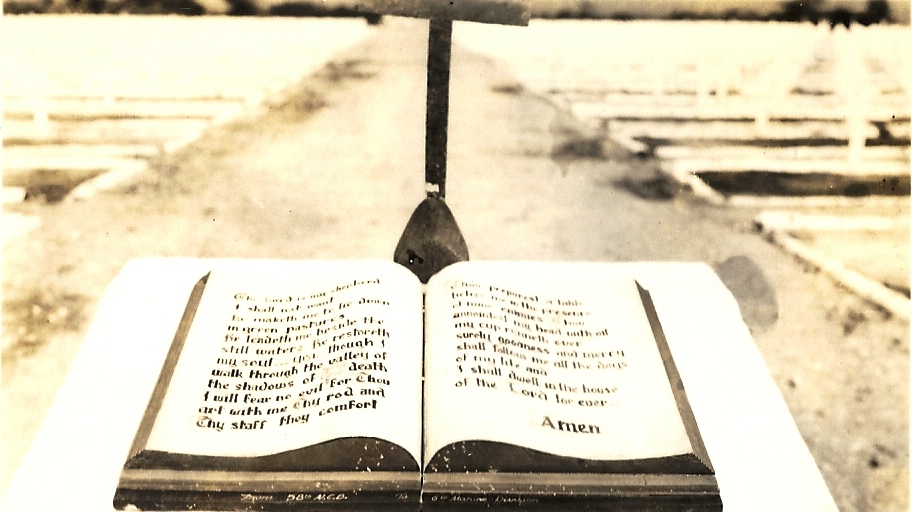 The Lord is my shepherd
I shall not want
he maketh me to lie down
in green pastures
he leadeth me beside the
still waters he restoreth
my soul... though I
walk through the valley of
the shadows of death
I will fear no evil for Thou
art with me Thy rod and
Thy staff they comfort
Thou a table
me in the presence
of mine
my head with oil
my cup runneth over
surely goodness and mercy
shall follow me all the days
of my life and
I shall dwell in the house
of the Lord for ever...
Amen
From 58th N.C.B. To 6th Marine Division